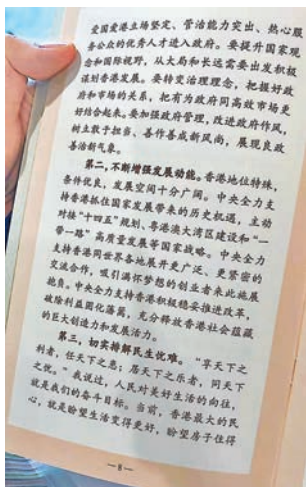 爱国爱港立场坚定、管治能力突出、热心服
务公众的优秀人才进入政府。要提升国家观
念和国际视野，从大局和长远需要出发积极
谋划香港发展。要转变治理理念，把握好政
府和市场的关系，把有为政府同高效市场更
好结合起来。要加强政府管理，改进政府作风，
树立敢于担当、善作善成新风尚，展现良政
善治新气象。
第二，不断增强发展动能。香港地位特殊，
条件优良，发展空间十分广阔。中央全力支
持香港抓住国家发展带来的历史机遇，主动
对接“十四五”规划、粤港澳大湾区建设和“一
带一路”高质量发展等国家战略。中央全力
支持香港同世界各地展开更广泛、更紧密的
交流合作，吸引满怀梦想的创业者来此施展
抱负。中央全力支持香港积极稳妥推进改革，
破除利益固化藩篱，充分释放香港社会蕴藏
的巨大创造力和发展活力。
第三，切实排解民生忧难。“享天下之
利者，任天下之患；居天下之乐者，同天下
之忧。”我说过，人民对美好生活的向往，
就是我们的奋斗目标。当前，香港最大的民
心，就是盼望生活变得更好，盼望房子住得
—8—